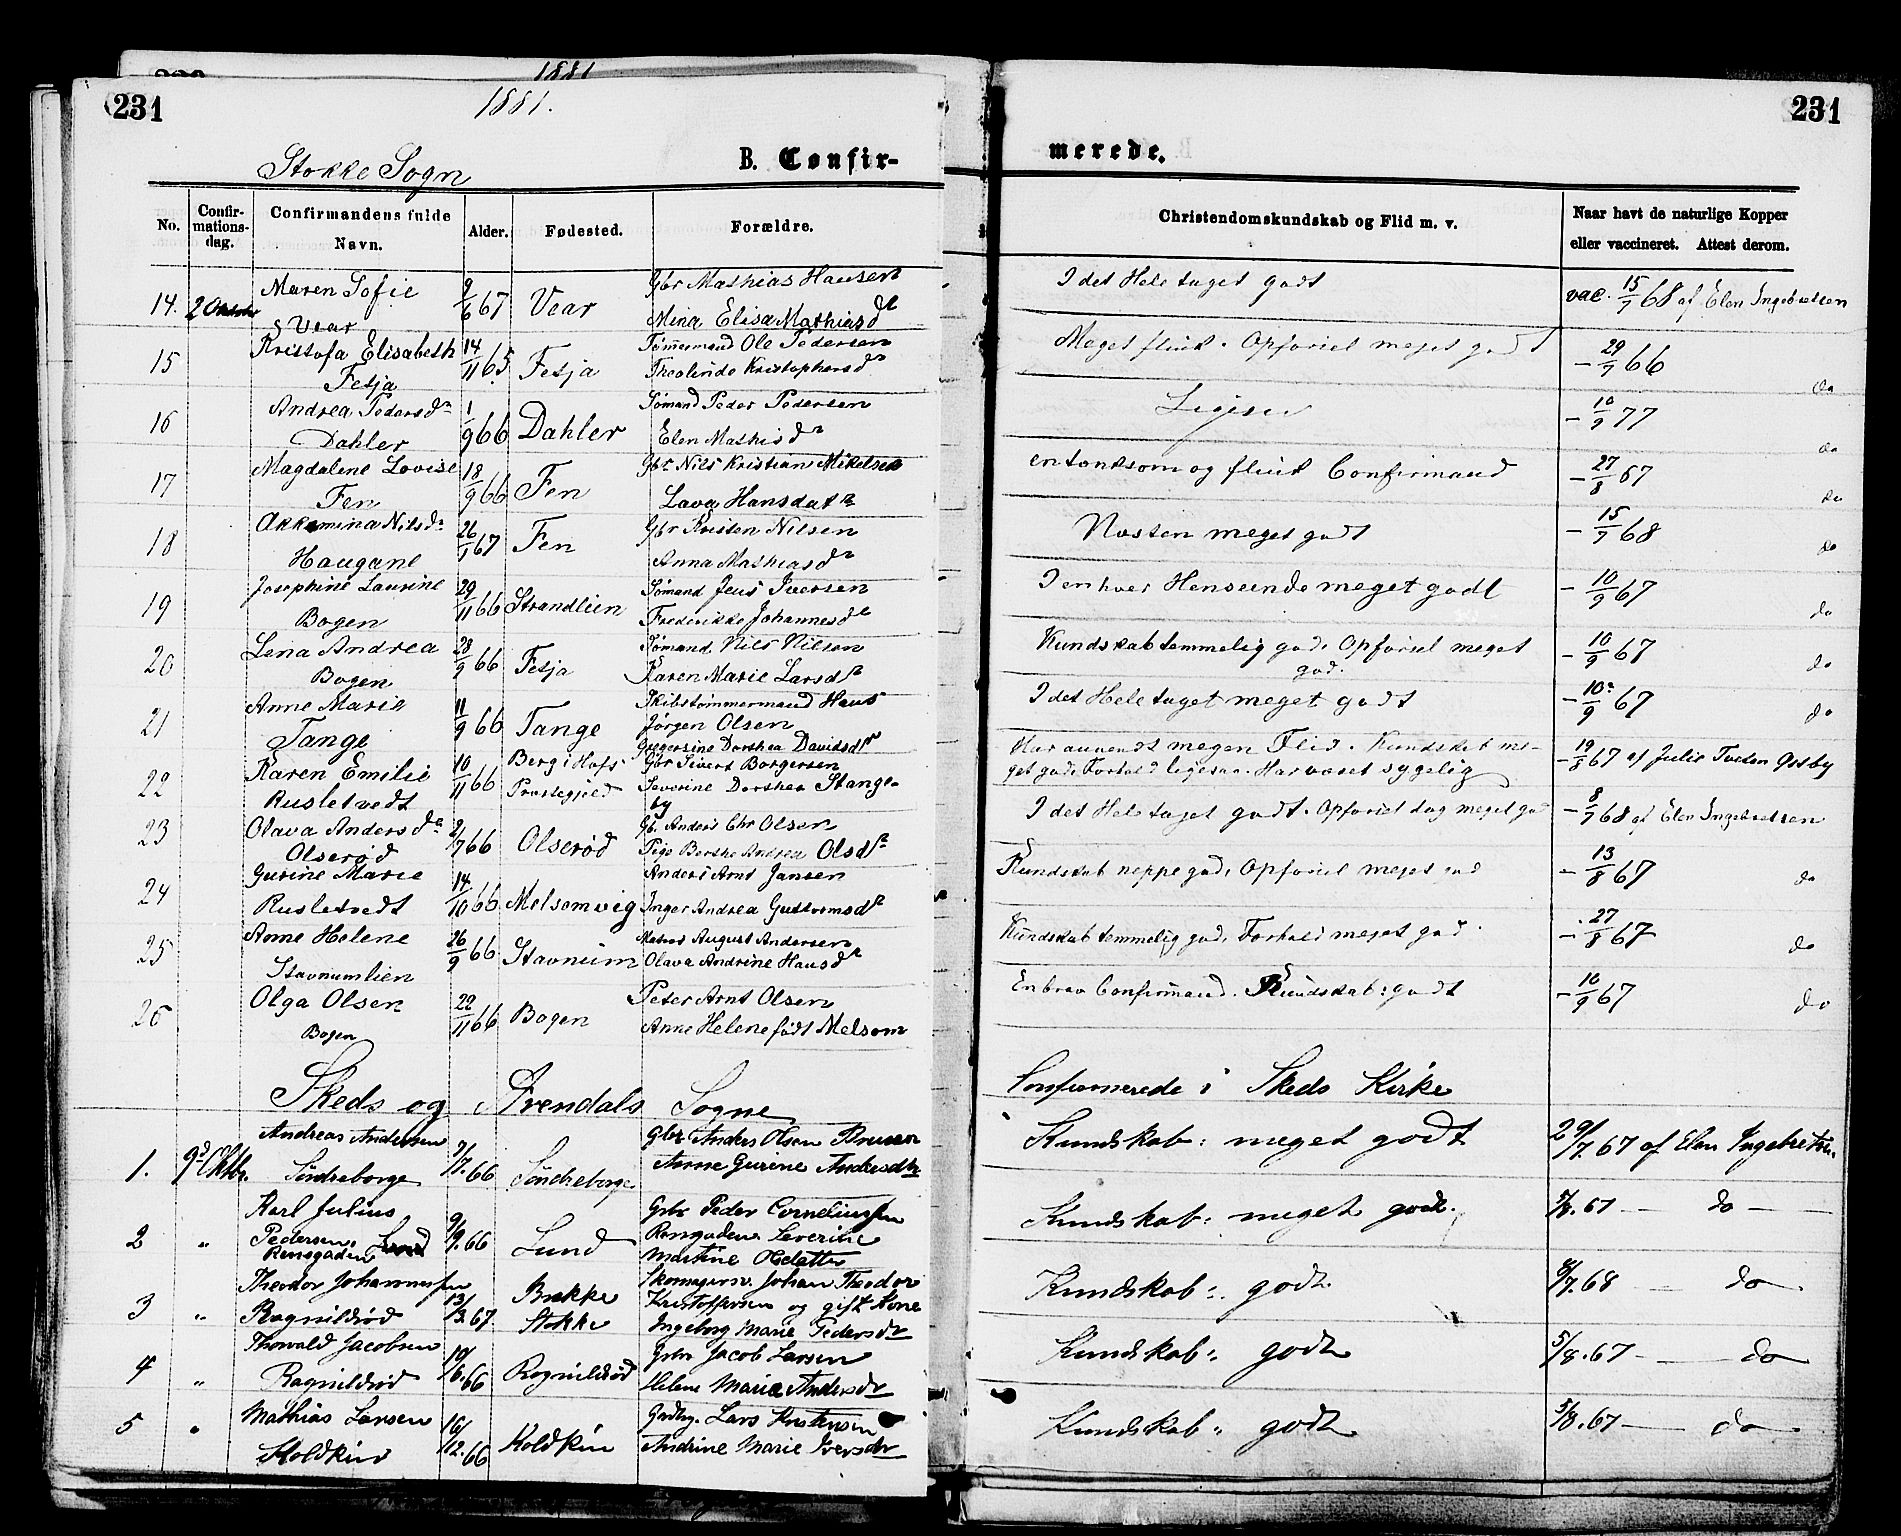 1881
231
1881.
231
Stokke Sogn
B. Confir-
merede.
No.
Confir-
mations-
dag.
Confirmandens fulde
Navn.
Alder.
Fødested.
Forældre.
Christendomskundskab og Flid m. v.
Naar havt de naturlige Kopper
eller vaccineret. Attest derom.
14. 2 Oktober Maren Sofie Vear 9/6 67 Vear Gbr Mathias Hansen
Mina Elisa Mathiasdr
I det Hele taget godt vac. 15/7 68 af Elen Ingebretsen
15 Kristofa Elisabeth Fesja 14/11 65 Fesja Tømmermand Ole Pedersen
Theolinde Kristophersdr
Meget flink. Opførsel meget god - 29/7 66 do
16 Andrea Pedersdr Dahler 1/9 66 Dahler Sømand Peder Pedersen
Elen Mathisdr
Ligesaa - 10/9 77 do
17 Magdalene Lovise Fen 18/9 66 Fen Gbr Nils Kristian Mikelsen
Lava Hansdatr
en tænksom og flink Confirmand - 27/8 67 do
18 Akkemina Nilsdr Haugane 26/1 67 Fen Gbr Kristen Nilsen
Anna Mathiasdr
Næsten meget godt - 15/7 68 do
19 Josephine Laurine Bogen 29/11 66 Strandlien Sømand Jens Iversen
Frederikke Johannesdr
I enhver Henseende meget godt - 10/9 67 do
20 Lena Andrea Bogen 28/9 66 Fesja Sømand Nils Nilsen
Karen Marie Larsdtr
Kundskab temmelig god. Opførsel meget
god. - 10/9 67 do
21 Anne Marie Tange 11/9 66 Tange Skibstømmermand Hans
Jørgen Olsen
Gregersine Dorthea Davidsdtr
I det Hele taget meget godt - 10/9 67 do
22 Karen Emilie Rusletvedt 10/11 66 Berg i Hofs
Præstegjeld Gbr Sivert Borgersen
Severine Dorthea Stange-
by
Har anvendt megen Flid. Kundskab me-
get god. Forhold ligesaa. Har været sygelig - 19/8 67 af Julie Tveten Gjsby
23 Olava Andersdr Olserød 2/7 66 Olserød Gb. Anders Chr Olsen
Pige Berthe Andrea Olsdtr
I det Hele taget godt. Opførsel dog meget god - 8/7 68 af Elen Ingebretsen
24 Gurine Marie Rusletvedt 14/10 66 Melsomvig Anders Arnt Jansen
Inger Andrea Guttormsdtr
Kundskab neppe god, Opførsel meget god - 13/8 67 do
25 Anne Helene Stavnumlien 26/9 66 Stavnum Matros August Andersen
Olava Andrine Hansdr
Kundskab temmelig god. Forhold meget god - 27/8 67 do
26 Olga Olsen Bogen 22/11 66 Bogen Peter Arnt Olsen
Anne Helene født Melsom
En brav Confirmand. Kundskab: godt - 10/9 67 do
Skeds og Arendals Sogne
Confirmerede i Skeds Kirke
1. 9d Oktbr. Andreas Andersen Söndreborge 7/7.66 Söndreborge Gbr Anders Olsen Bruun
Anne Gurine Andersdtr
Kundskab: meget godt 29/7 67 af Elen Ingebretsn.
2 " Karl Julius
Pedersen Lund
Rønsgaden 9/9.66 Lund Gbr Peder Corneliussen
Rønsgaden Severine
Martine Hedette
Kundskab: meget godt. 5/8.67 — do —
3 " Theodor Johannessen Ragnildrød 13/3.67. Bukke
Stokke Skomagersv. Johan Theodor
Kristoffersen og gift Kone
Ingeborg Marie Pedersdr
Kundskab: godt. 8/7.68 — do
4 " Thorvald Jacobsen Ragnildrød 19/6.66 Ragnildrød Gbr Jacob Larsen
Helene Marie Andersdr
Kundskab: godt 5/8.67 — do
5 " Mathias Larsen Holdkin 16/12.66 Holdkin Gbr. Lars Kristensen
Andrine Marie Iversdtr
Kundskab: godt 5/8.67 — do